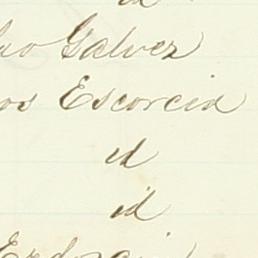 id
Galvez
os Escorcia
id
id